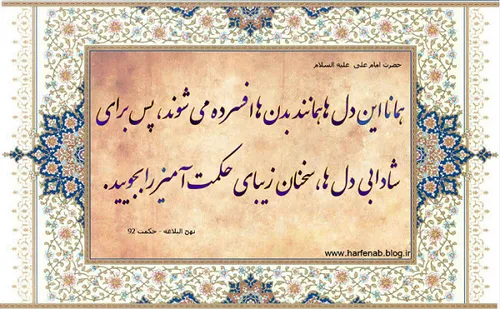 حضرت امام علی علیه السلام
همانا این دل ها همانند بدن ها افسرده می شوند، پس برای
شادابی دل ها، سخنان زیبای حکمت آمیز را بجویید.
نهج البلاغه - حکمت 92
www.harfenab.blog.ir